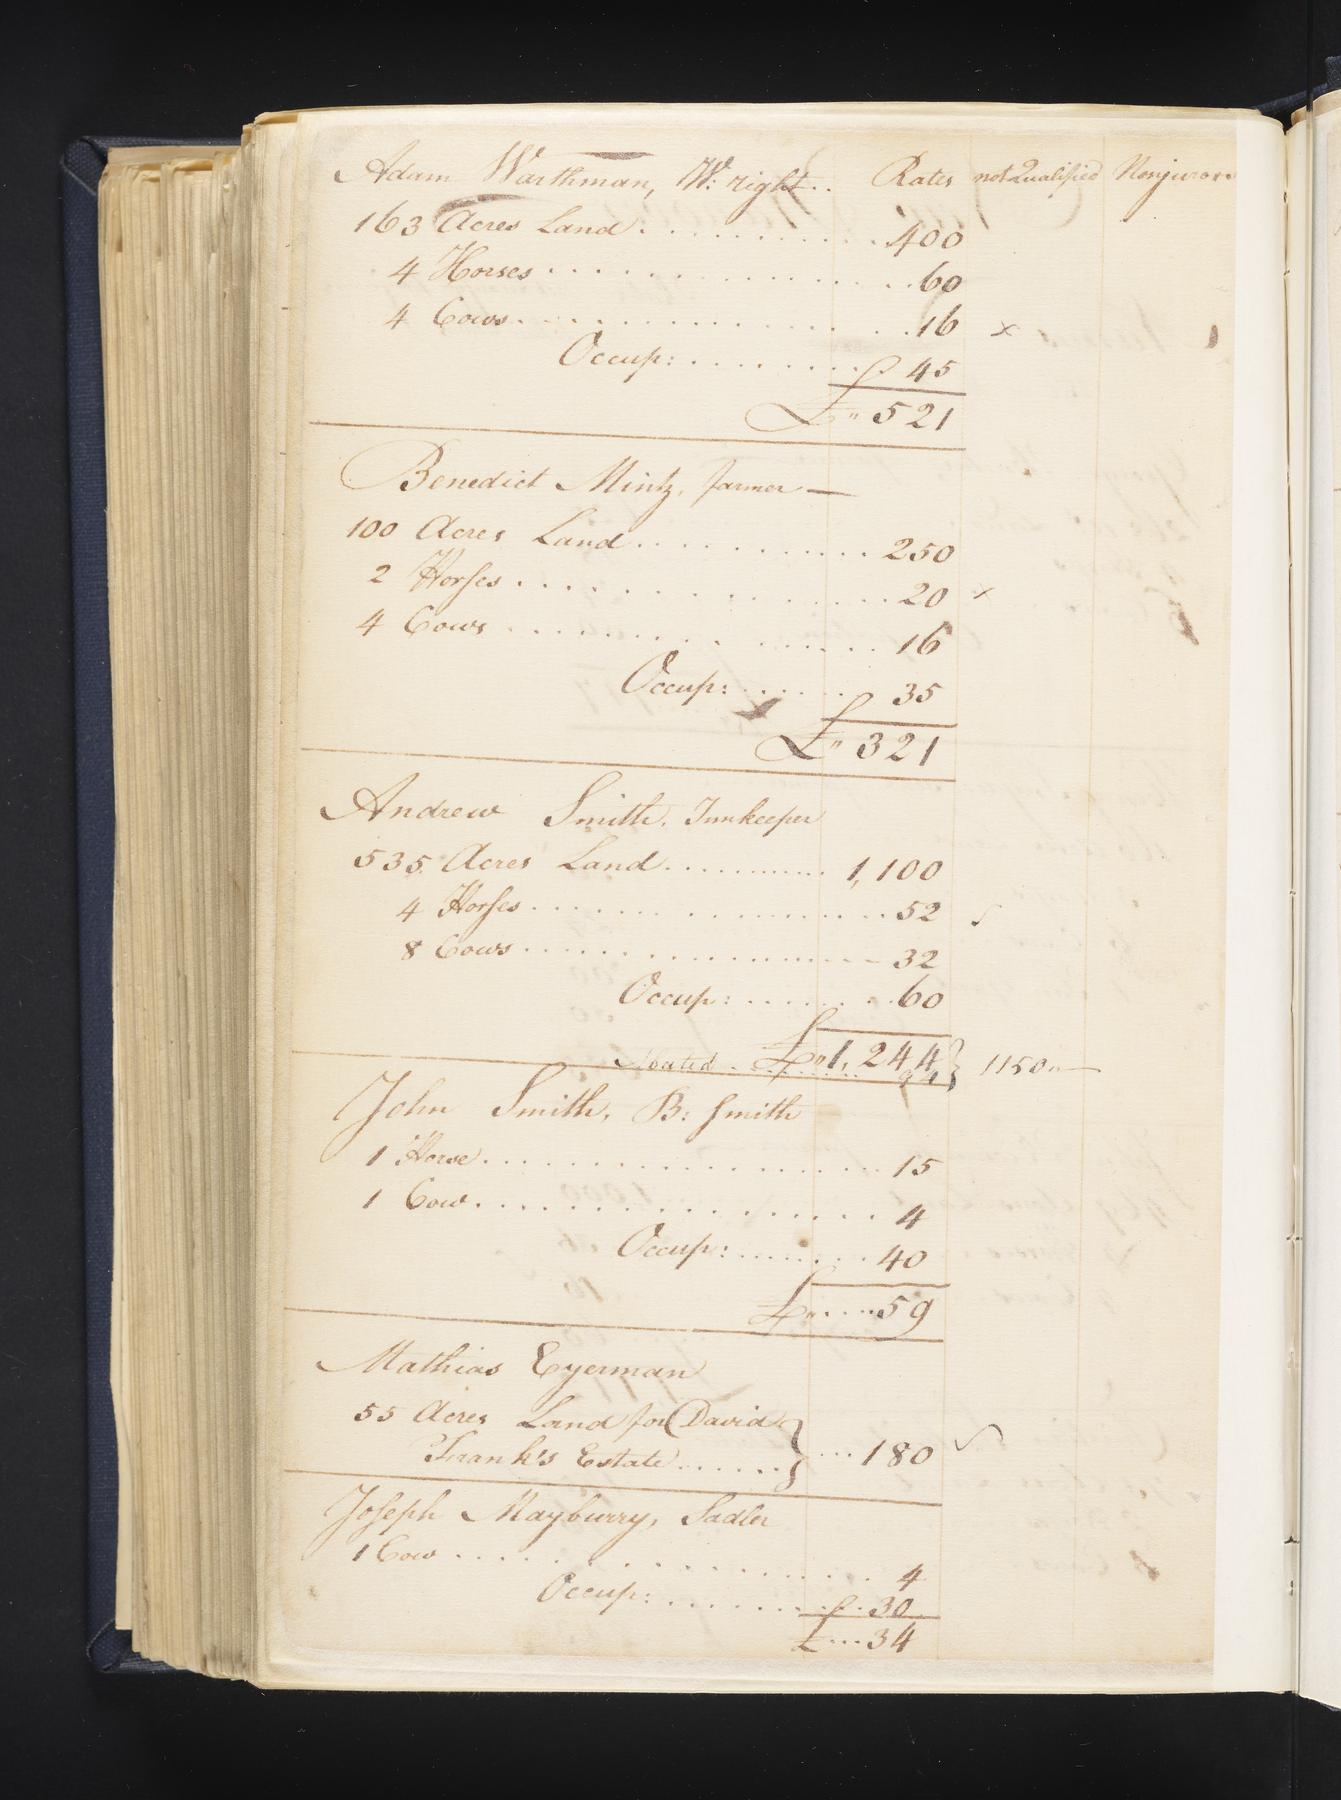 Adam Warthman, W: right.. Rates not Qualified Nonjurors
163 Acres Land . . . . . . . . . . . 400
4 Horses . . . . . . . . . . . . . . 60
4 Cows . . . . . . . . . . . . . . . 16 x
Occup: . . . . . . . . . 45
£" 521
Benedict Mintz, farmer —
100 Acres Land . . . . . . . . . . . 250
2 Horses . . . . . . . . . . . . . . 20 x
4 Cows . . . . . . . . . . . . . . . 16
Occup: . . . . . . 35
£" 321
Andrew Smith, Innkeeper
535 Acres Land . . . . . . . . . . . 1,100
4 Horses . . . . . . . . . . . . . . 52
8 Cows . . . . . . . . . . . . . . . 32
Occup: . . . . . . . . 60
£" 1,244
Abated . . . . . . . . . 94 } 1150 " —
John Smith, B: Smith
1 Horse . . . . . . . . . . . . . . . 15
1 Cow . . . . . . . . . . . . . . . . 4
Occup: . . . . . . . . 40
£" . . . . 59
Mathias Eyerman
55 Acres Land for David
Frank's Estate . . . . . . } . . . 180
Joseph Mayburry, Sadler
1 Cow . . . . . . . . . . . . . . . . 4
Occup: . . . . . . . . . . 30
£ . . . 34